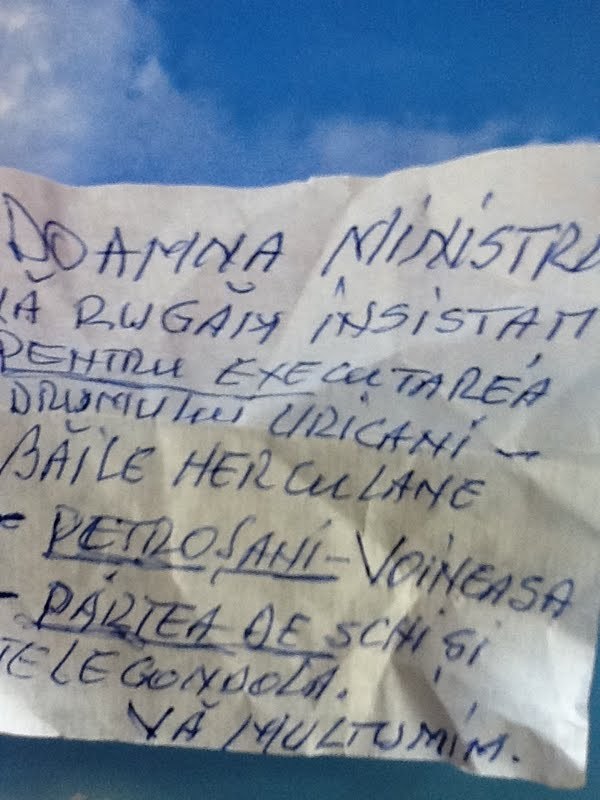 DOAMNA MINISTRU
VĂ RUGĂM ÎNSISTAM
PENTRU EXECUTAREA
DRUMULUI URICANI -
BĂILE HERCULANE
- PETROȘANI - VOINEASA
- PÂRTEA DE SCHI ȘI
TELEGONDOLA.
VĂ MULTUMIM.